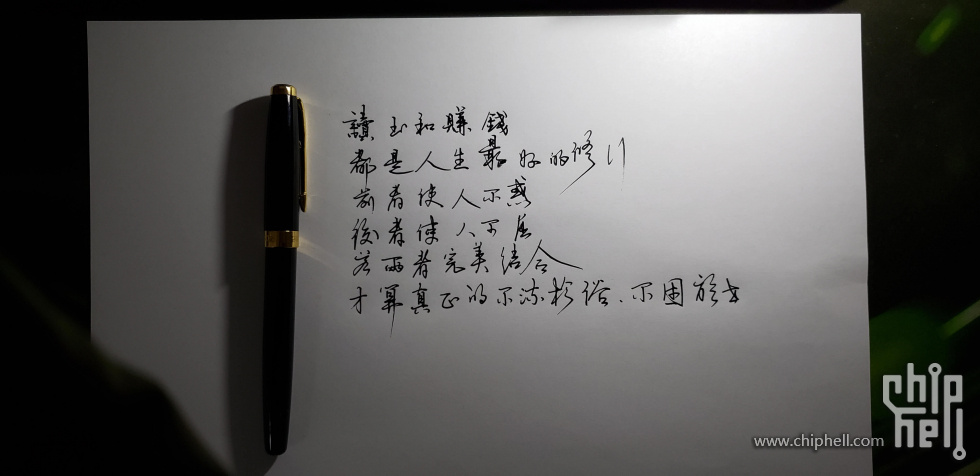 讀书和賺錢
都是人生最好的修行
前者使人不惑
後者使人不屈
若兩者完美结合
才算真正的不流於俗、不困於世
www.chiphell.com
chip
hell